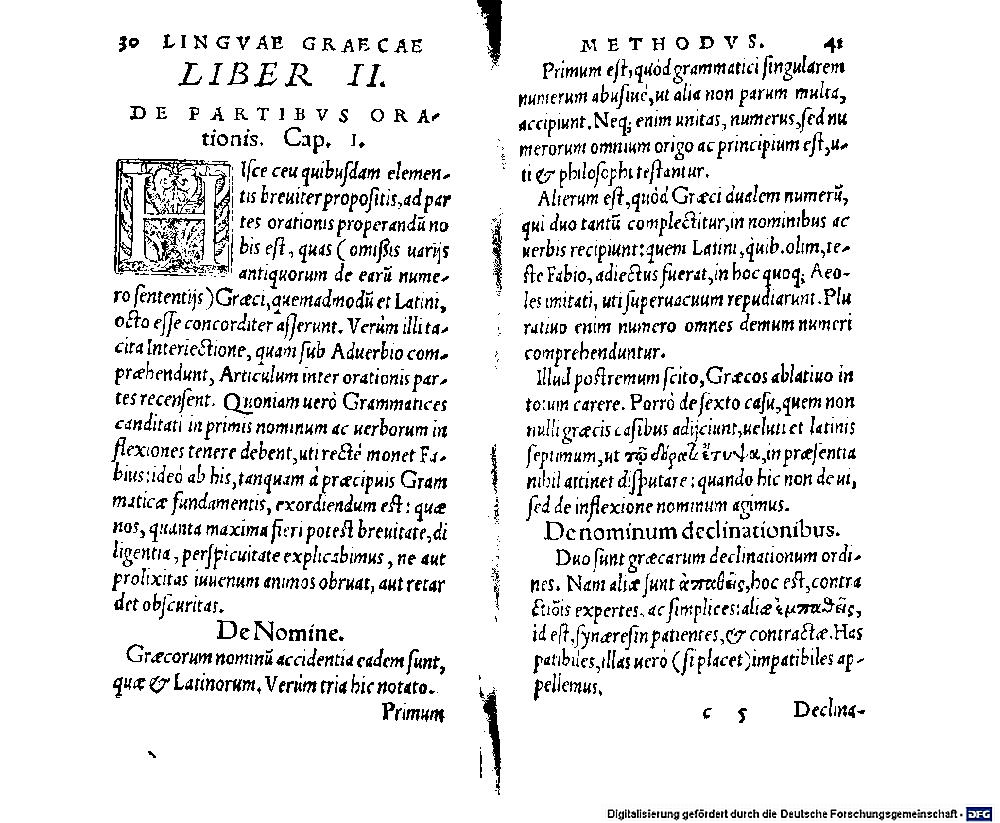 30 LINGVAE GRAECAE
LIBER II.
DE PARTIBVS ORA-
tionis. Cap. I.
HIſce ceu quibuſdam elemen-
tis breuiter propoſitis, ad par
tes orationis properandũ no
bis eſt, quas (omiſsis uarijs
antiquorum de earũ nume-
ro ſententijs) Græci, quemadmodũ et Latini,
octo eſſe concorditer aſſerunt. Verùm illi ta-
cita Interiectione, quam ſub Aduerbio com-
præhendunt, Articulum inter orationis par-
tes recenſent. Quoniam uerò Grammatices
canditati in primis nominum ac uerborum in
flexiones tenere debent, uti rectè monet Fa-
bius: ideò ab his, tanquam à præcipuis Gram
maticæ fundamentis, exordiendum eſt: quæ
nos, quanta maxima fieri poteſt breuitate, di
ligentia, perſpicuitate explicabimus, ne aut
prolixitas iuuenum animos obruat, aut retar
det obſcuritas.
De Nomine.
Græcorum nominũ accidentia eadem ſunt,
quæ & Latinorum. Verùm tria hic notato.
Primum
METHODVS. 41
Primum eſt, quòd grammatici ſingularem
numerum abuſiuè, ut alia non parum multa,
accipiunt. Neq; enim unitas, numerus, ſed nu
merorum omnium origo ac principium eſt, u-
ti & philoſophi teſtantur.
Alterum eſt, quòd Græci dualem numerũ,
qui duo tantũ complectitur, in nominibus ac
uerbis recipiunt: quem Latini, quib. olim, te-
ſte Fabio, adiectus fuerat, in hoc quoq; Aeo-
les imitati, uti ſuperuacuum repudiarunt. Plu
ratiuo enim numero omnes demum numeri
comprehenduntur.
Illud poſtremum ſcito, Græcos ablatiuo in
totum carere. Porrò de ſexto caſu, quem non
nulli græcis caſibus adijciunt, ueluti et latinis
ſeptimum, ut τῷ δόρατι ἔτυψα, in præſentia
nihil attinet diſputare: quando hic non de ui,
ſed de inflexione nominum agimus.
De nominum declinationibus.
Duo ſunt græcarum declinationum ordi-
nes. Nam aliæ ſunt ἀπαθεῖς, hoc eſt, contra
ctiõis expertes, ac ſimplices: aliæ ἐμπαθεῖς,
id eſt, ſynæreſin patientes, & contractæ. Has
patibiles, illas uerò (ſi placet) impatibiles ap-
pellemus.
c 5 Declina-
Digitalisierung gefördert durch die Deutsche Forschungsgemeinschaft - DFG